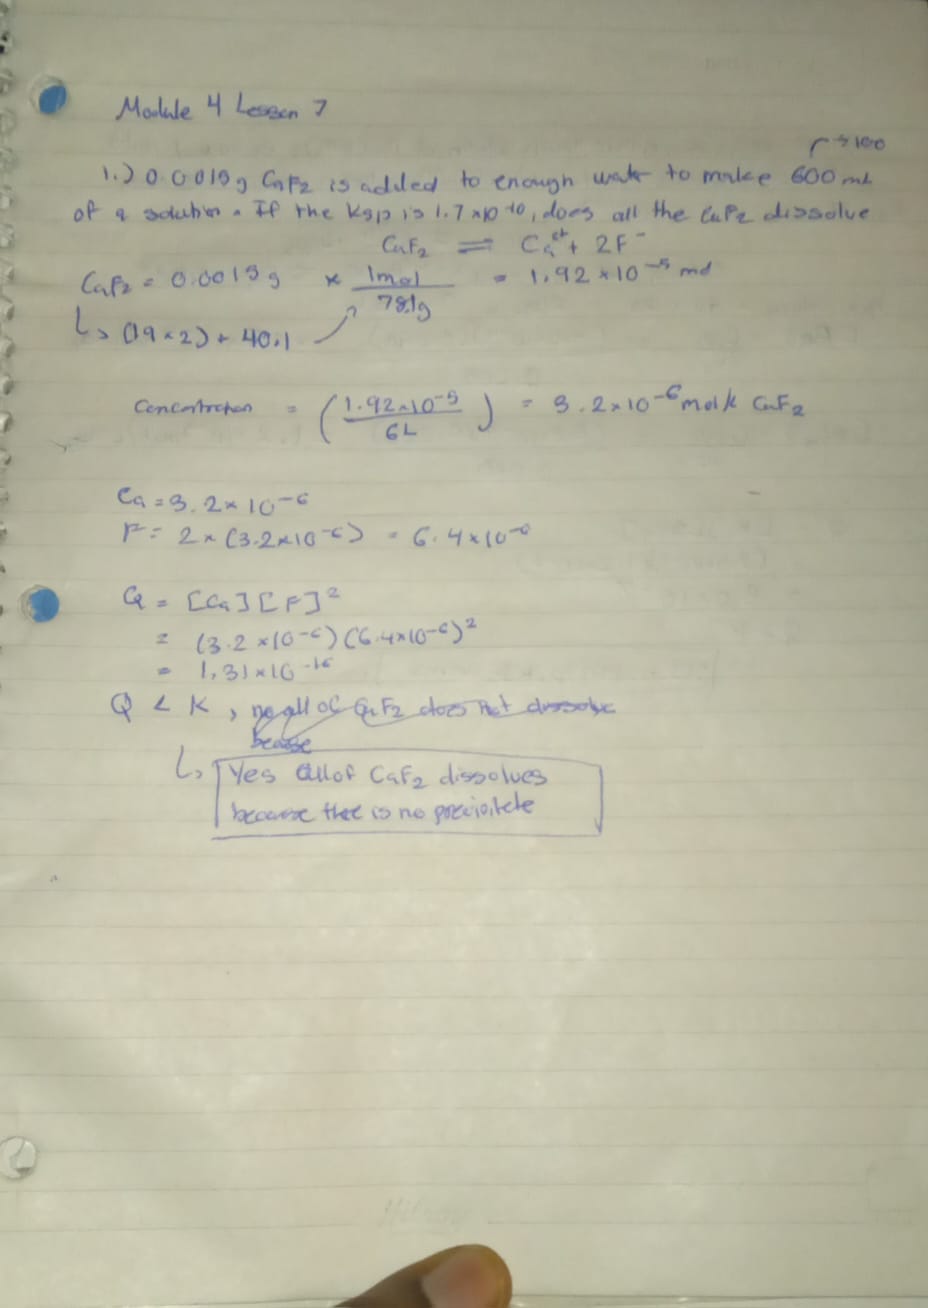 Module 4 Lesson 7
→ 100
1.) 0.0015g CaF2 is added to enough water to make 600 mL
of a solution. If the Ksp is 1.7 x10^-10, does all the CaF2 dissolve
CaF2 ⇌ Ca^2+ + 2F^-
CaF2 = 0.0015 g x 1mol / 78.1g = 1.92 x 10^-5 mol
↳ (19 x 2) + 40.1
Concentration = (1.92 x 10^-5 / 6L) = 3.2 x 10^-6 mol/L CaF2
Ca = 3.2 x 10^-6
F = 2 x (3.2 x 10^-6) = 6.4 x 10^-6
Q = [Ca][F]^2
= (3.2 x 10^-6)(6.4 x 10^-6)^2
= 1.31 x 10^-16
Q < K, no all of CaF2 does not dissolve
because
↳ Yes all of CaF2 dissolves
because there is no precipitate